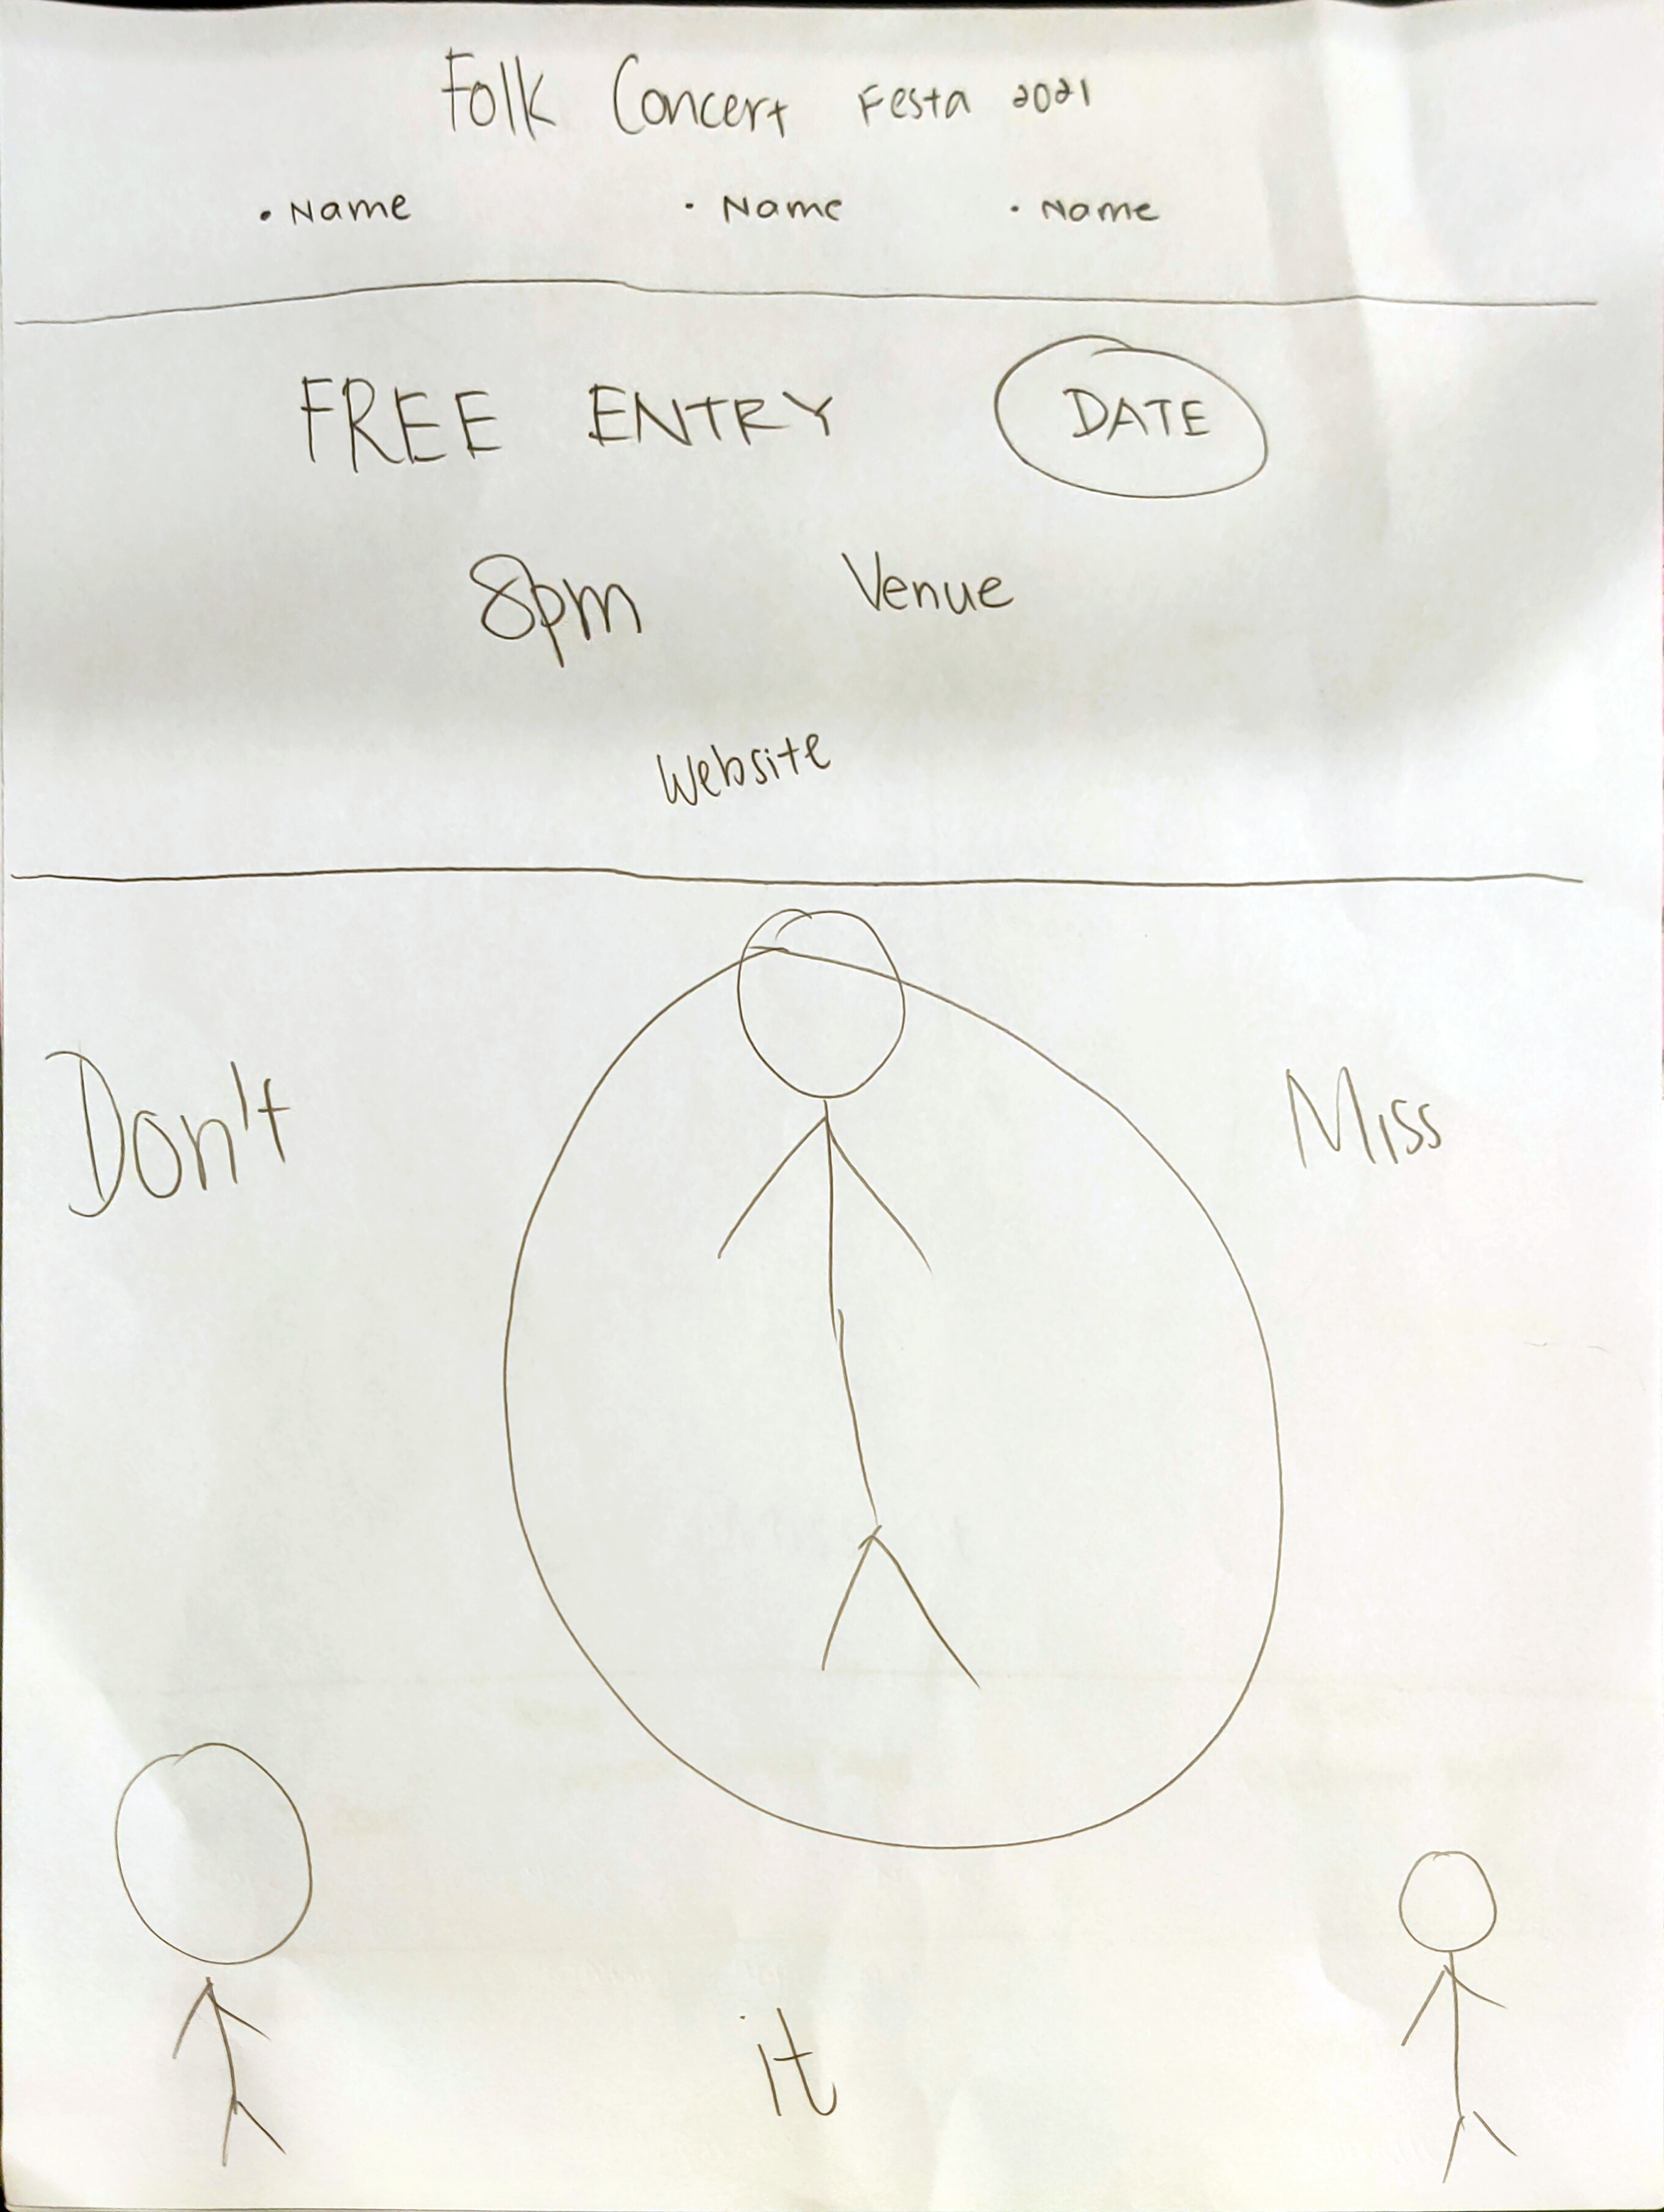 Folk Concert Festa 2021
• Name • Name • Name
FREE ENTRY DATE
8pm Venue
Website
Don't Miss
it